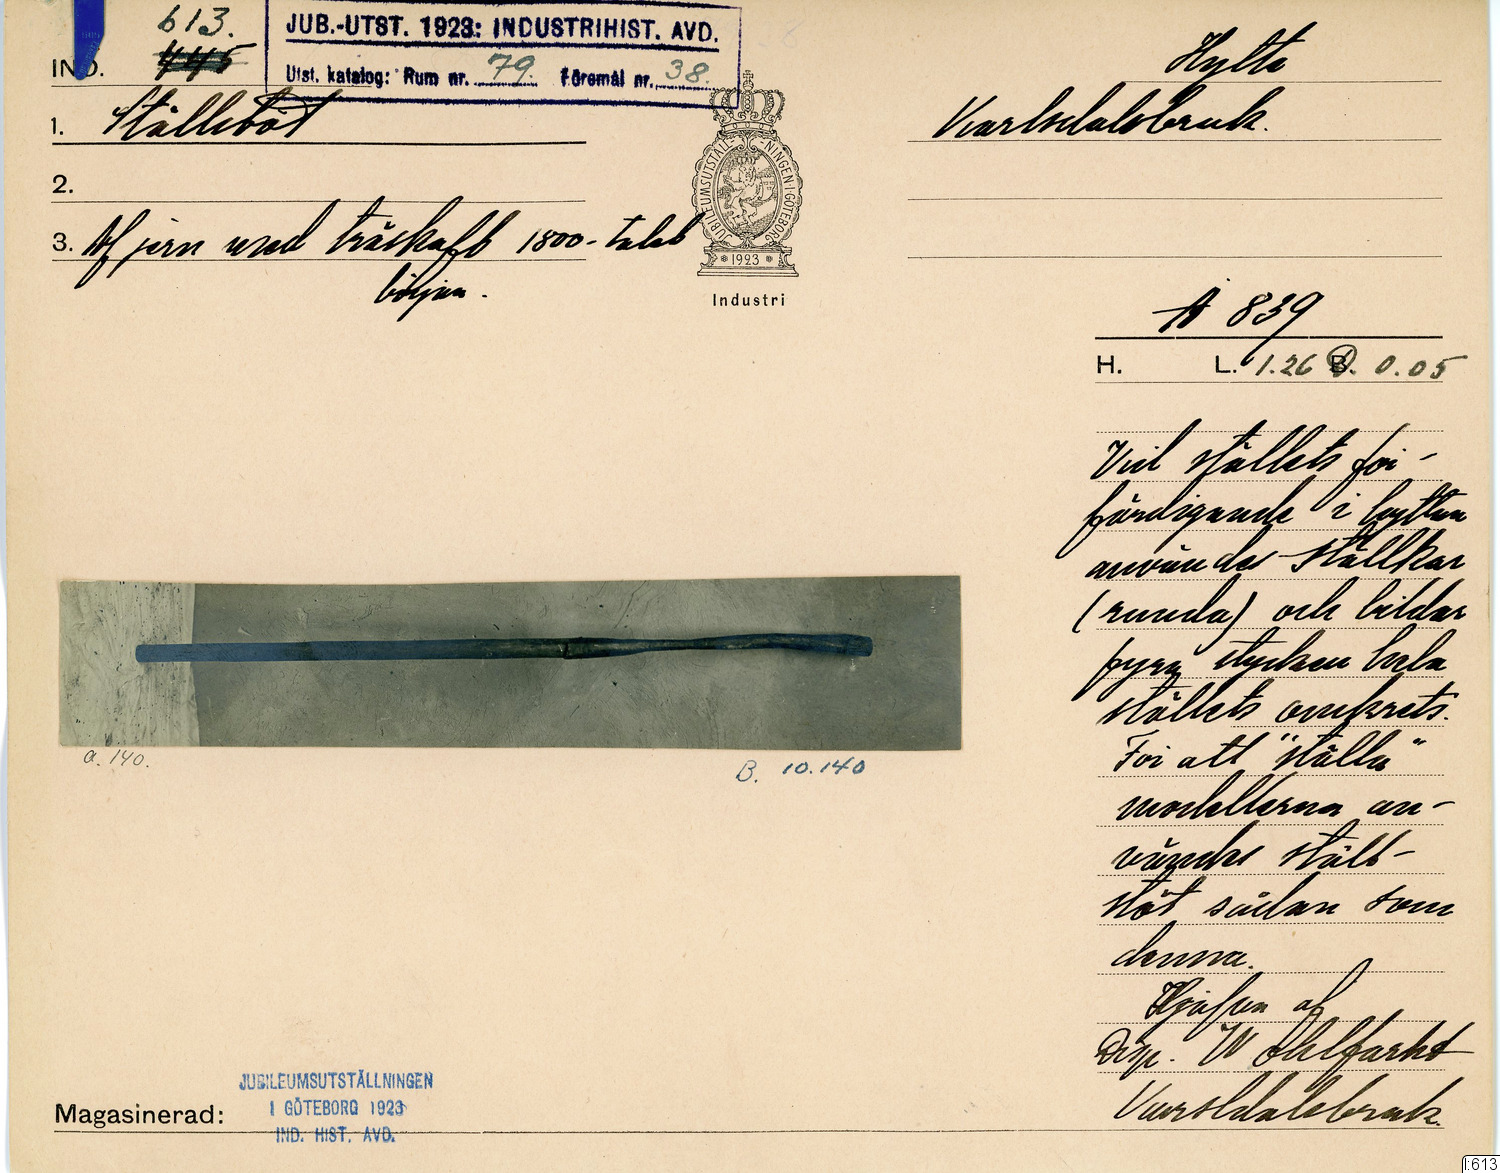 613.
IND. 445
JUB.-UTST. 1923: INDUSTRIHIST. AVD.
Utst. katalog: Rum nr. 79. Föremål nr. 38.
1. Ställstöt
2.
3. Af jern med träskaft 1800-talets
början.
JUBILEUMSUTSTÄLLNINGEN I GÖTEBORG
1923
Industri
Hytte
Karlsdalsbruk.
A 839
H. L. 1.26 B. 0.05
Vid ställets för-
färdigande i hyttan
användes ställkar
(runda) och bildar
fyra stycken hela
ställets omkrets.
För att "ställa"
modellerna an-
vändes ställ-
stöt sådan som
denna.
af
Disp. W Ohlfarht
Karlsdalsbruk.
a. 140.
B. 10.140
JUBILEUMSUTSTÄLLNINGEN
I GÖTEBORG 1923
IND. HIST. AVD.
Magasinerad:
I:613